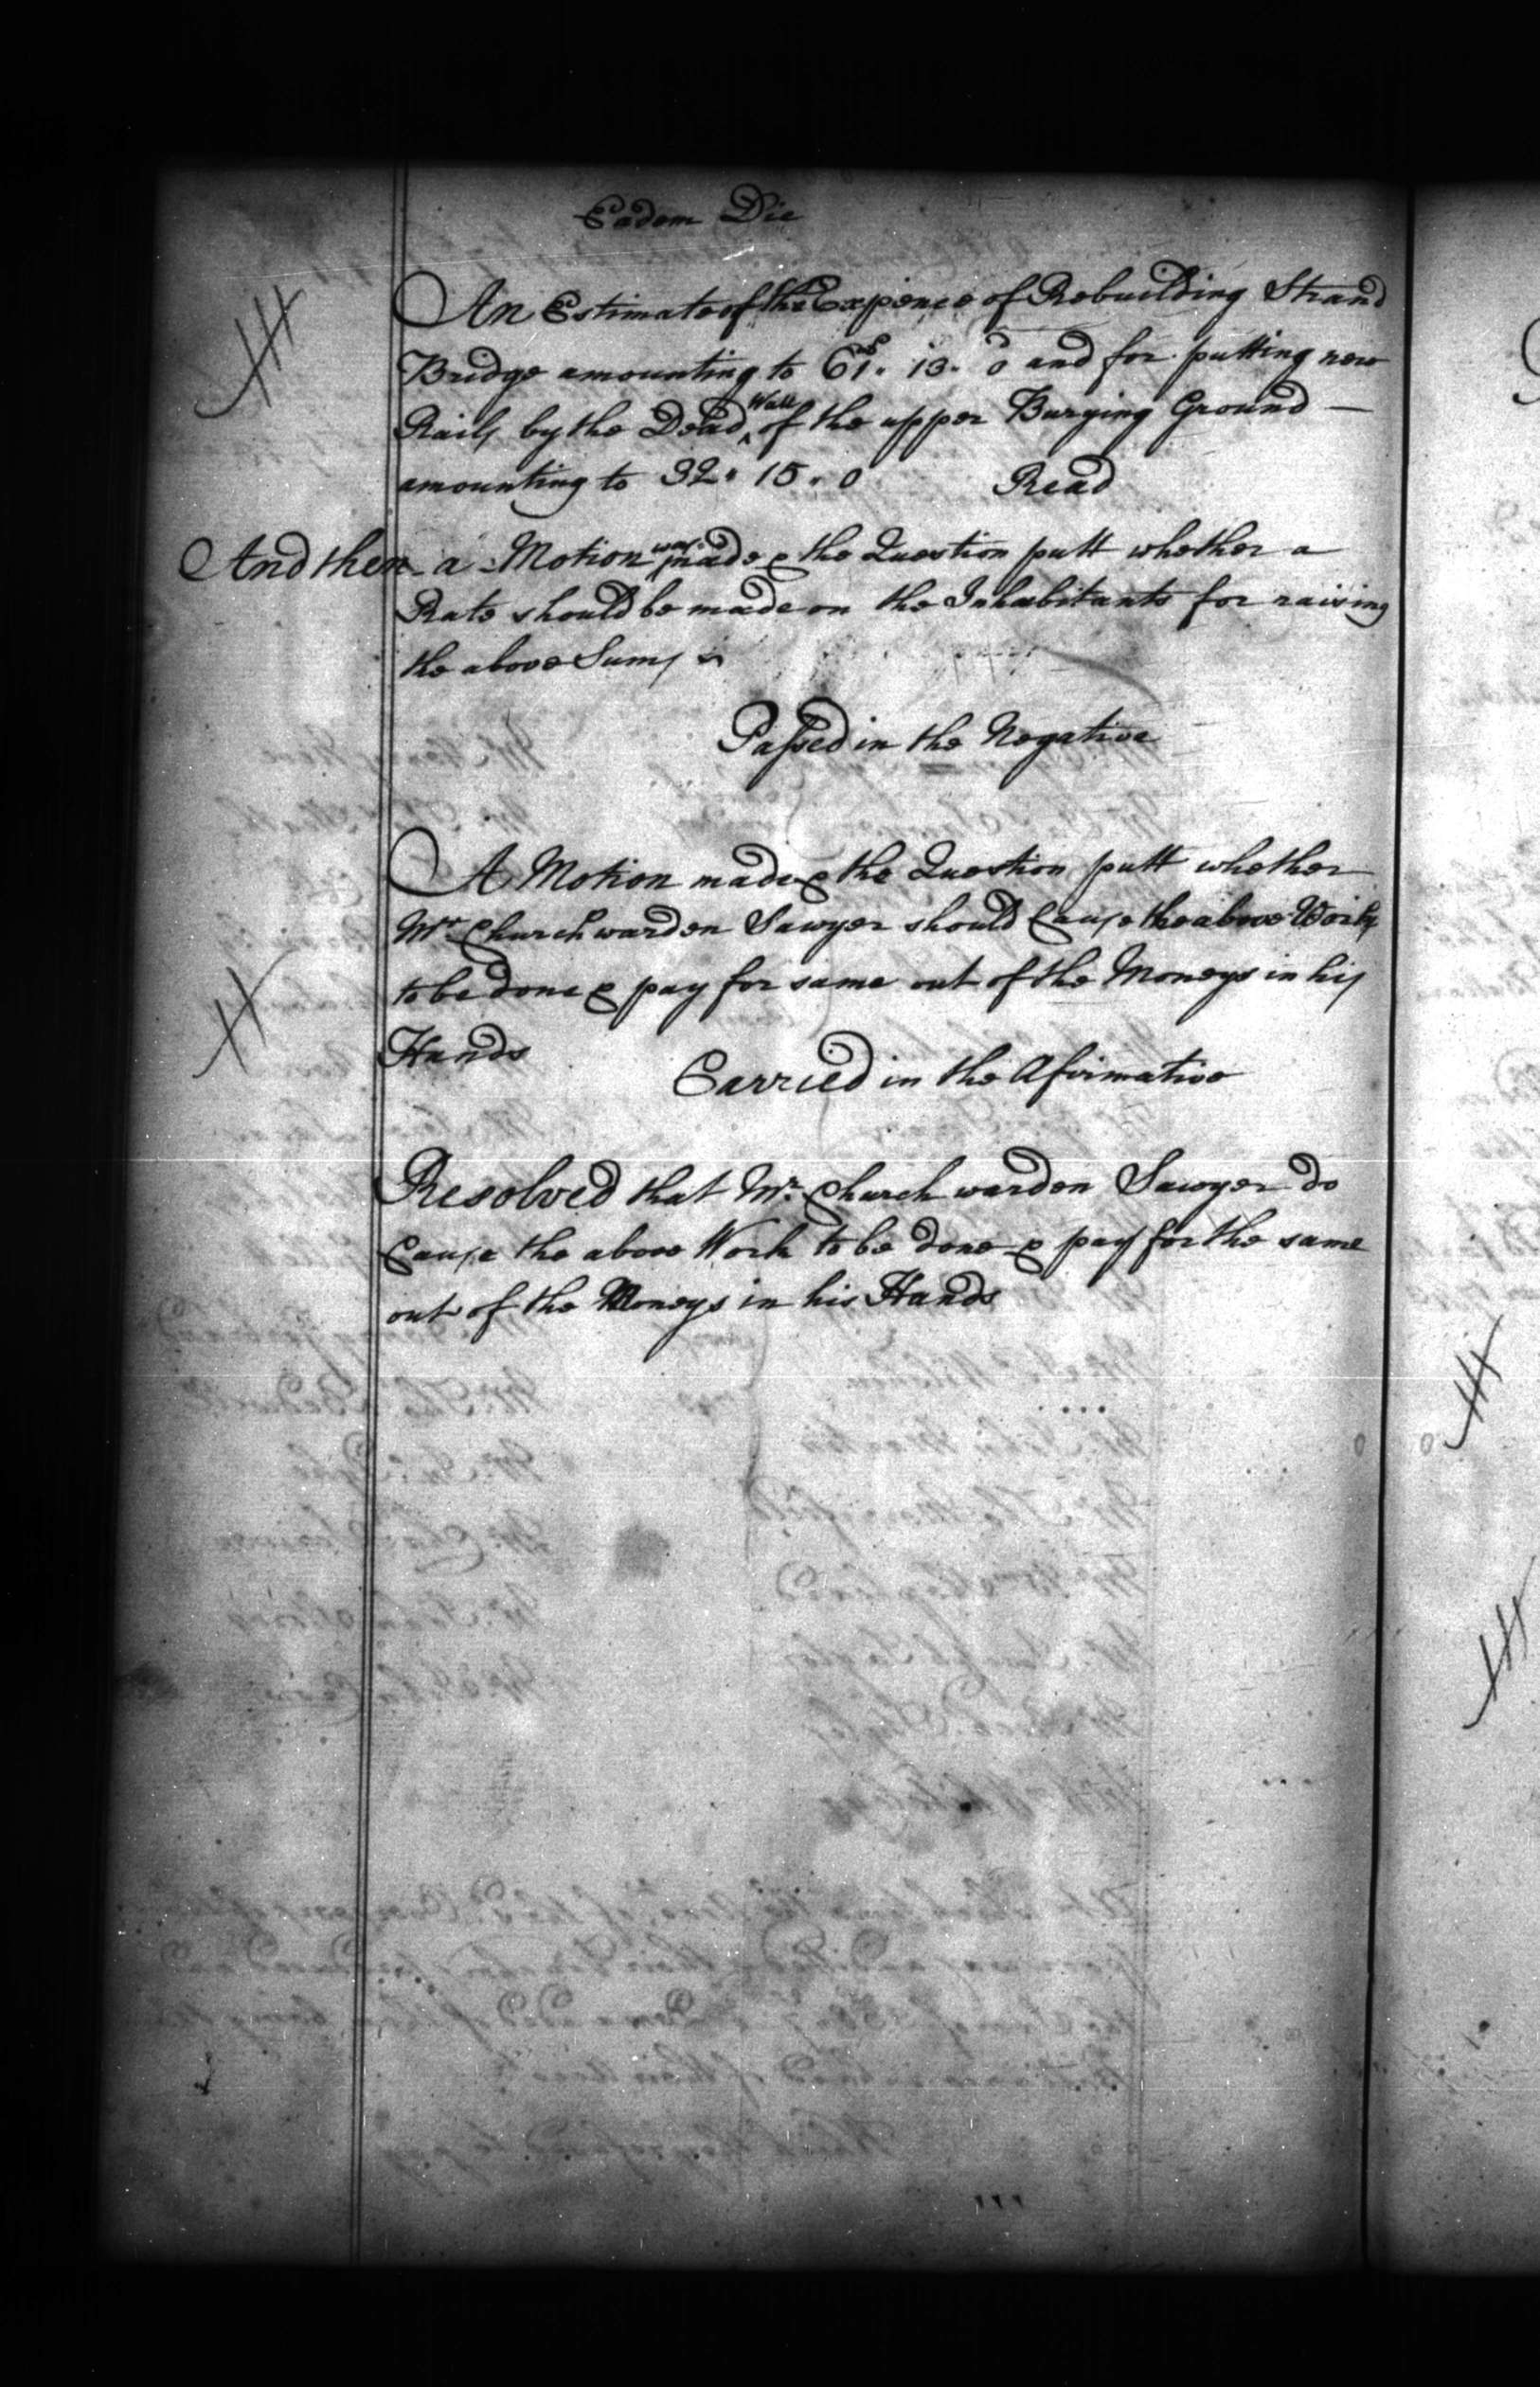 Eadem Die
An Estimate of the Expence of Rebuilding Strand
Bridge amounting to 61£. 13. 0 and for putting new
Rails by the Dead ^Wall of the upper Burying Ground —
amounting to 32. 15. 0 Read
And then a Motion ^was made & the Question putt whether a
Rate should be made on the Inhabitants for raising
the above Sums
Passed in the Negative
A Motion made & the Question putt whether
Mr Churchwarden Sawyer should Cause the above Works
to be done & pay for same out of the Moneys in his
Hands
Carried in the Afirmative
Resolved that Mr. Church warden Sawyer do
Cause the above Work to be done & pay for the same
out of the Moneys in his Hands